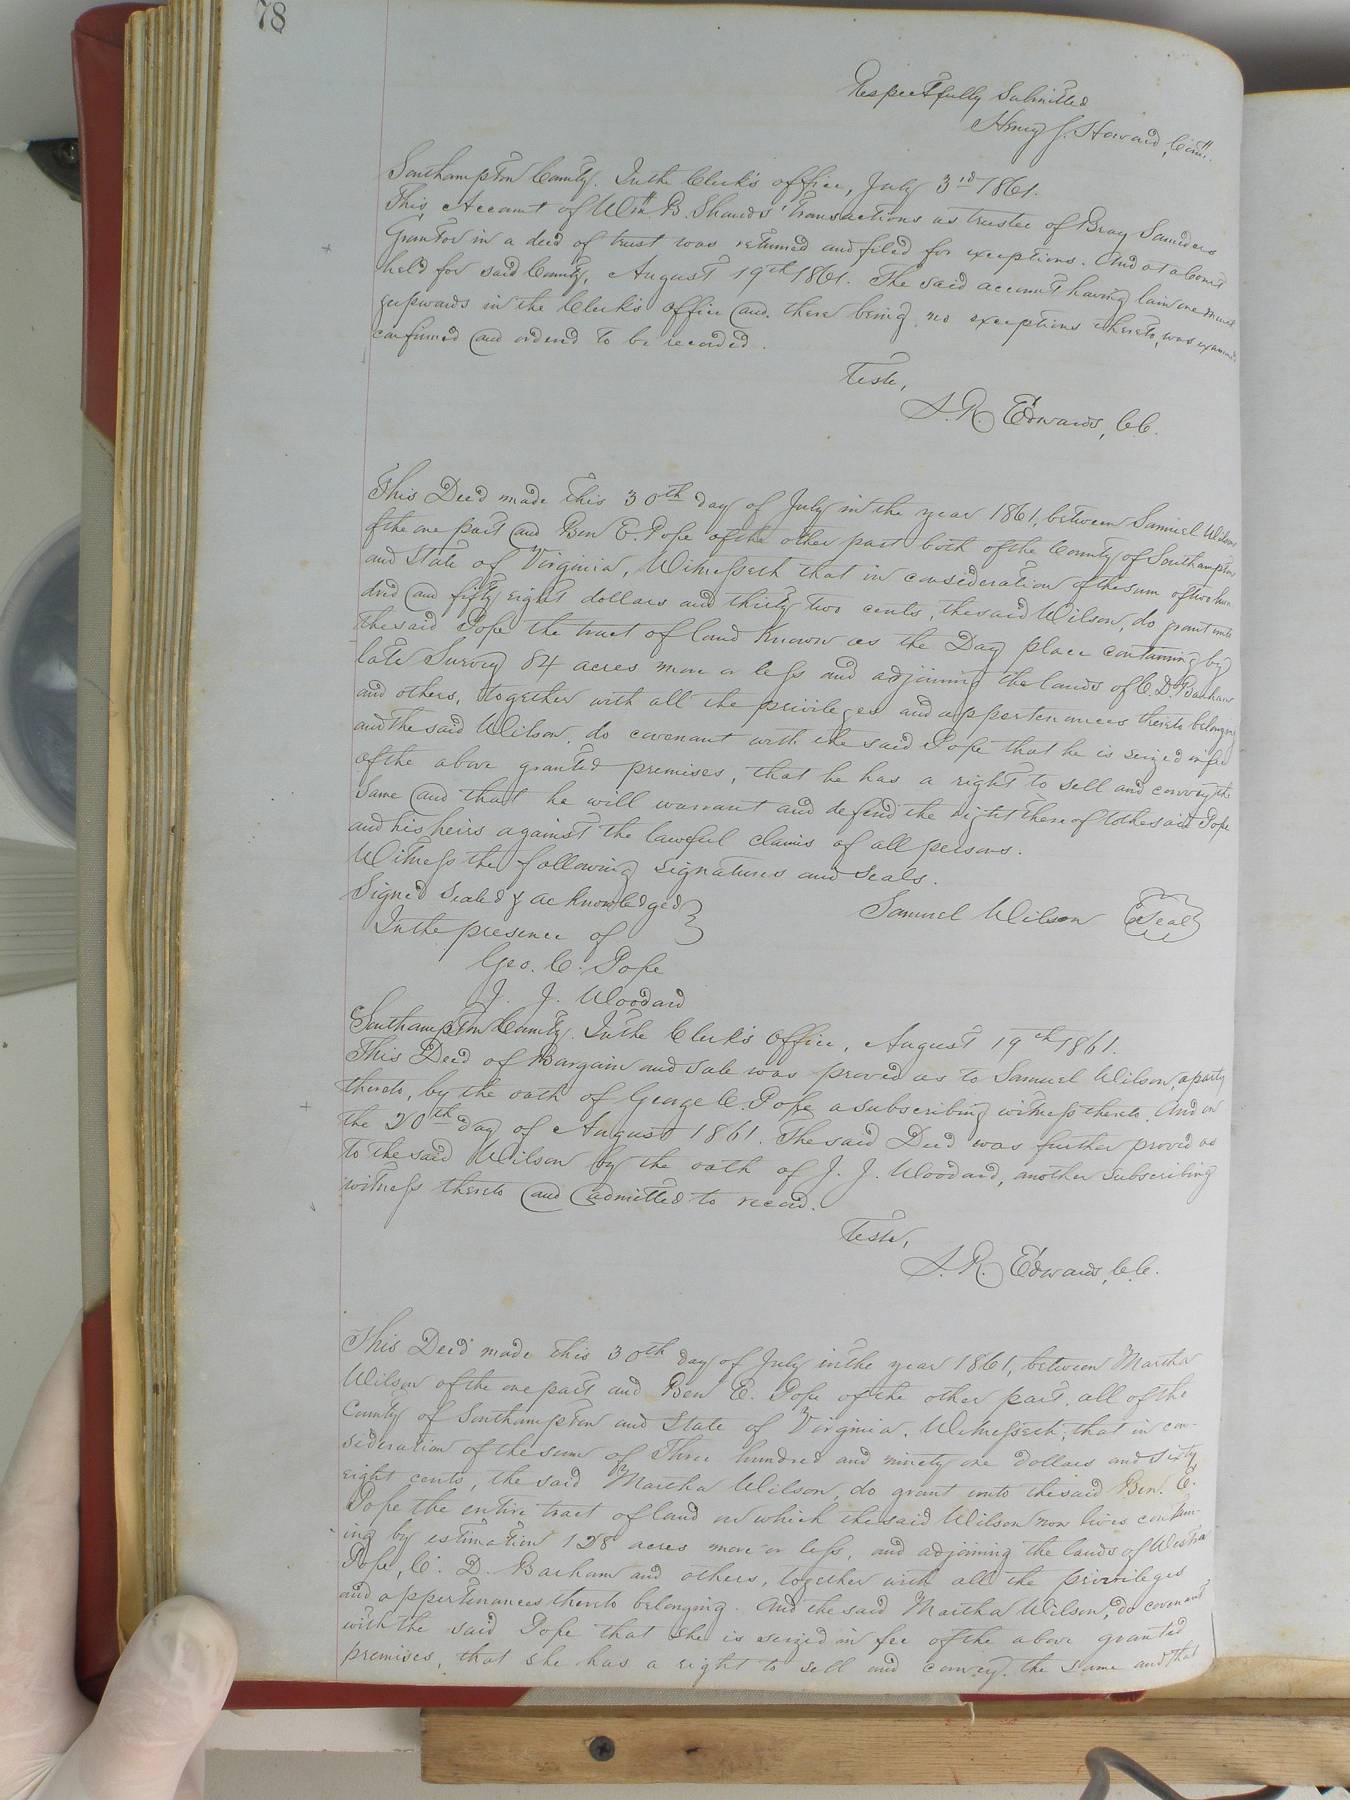 78
Respectfully Submitted
Henry J. Howard, Com.
Southampton County. In the Clerk's office, July 3rd 1861.
This Account of Wm. B. Shands' Transactions as trustee of Bray Saunders
Grantor in a deed of trust was returned and filed for exceptions. And at a Court
held for said County, August 19th 1861. The said account having lain one month
& upwards in the Clerk's office and there being no exceptions thereto, was examined
confirmed and ordered to be recorded.
Teste,
L. R. Edwards, CC.
This Deed made this 30th day of July in the year 1861, between Samuel Wilson
of the one part and Ben E. Pope of the other part both of the County of Southampton
and State of Virginia, Witnesseth that in consideration of the sum of two hun-
dred and fifty eight dollars and thirty two cents, the said Wilson, do grant unto
the said Pope the tract of land known as the Day place containing by
late Survey 84 acres more or less and adjoining the lands of C. D. Barham
and others, together with all the privileges and appertenances thereto belonging
and the said Wilson, do covenant with the said Pope that he is seized in fee
of the above granted premises, that he has a right to sell and convey the
same and that he will warrant and defend the right thereof to the said Pope
and his heirs against the lawful claims of all persons.
Witness the following signatures and seals.
Signed Sealed & acknowledged } Samuel Wilson Seal
In the presence of
Geo. C. Pope
J. J. Woodard
Southampton County. In the Clerk's Office, August 19th 1861.
This Deed of Bargain and sale was proved as to Samuel Wilson, a party
thereto, by the oath of George C. Pope a subscribing witness thereto. And on
the 20th day of August 1861. The said Deed was further proved as
to the said Wilson by the oath of J. J. Woodard, another subscribing
witness thereto and admitted to record.
Teste,
L. R. Edwards, C.C.
This Deed made this 30th day of July in the year 1861, between Martha
Wilson of the one part and Ben E. Pope of the other part, all of the
County of Southampton and State of Virginia. Witnesseth, that in con-
sideration of the sum of Three hundred and ninety one dollars and sixty
eight cents, the said Martha Wilson, do grant unto the said Ben. E.
Pope the entire tract of land on which the said Wilson now lives contain-
ing by estimation 128 acres more or less, and adjoining the lands of
Pope, C. D. Barham and others, together with all the privileges
and appertenances thereto belonging. And the said Martha Wilson, do covenant
with the said Pope that she is seized in fee of the above granted
premises, that she has a right to sell and convey the same and that